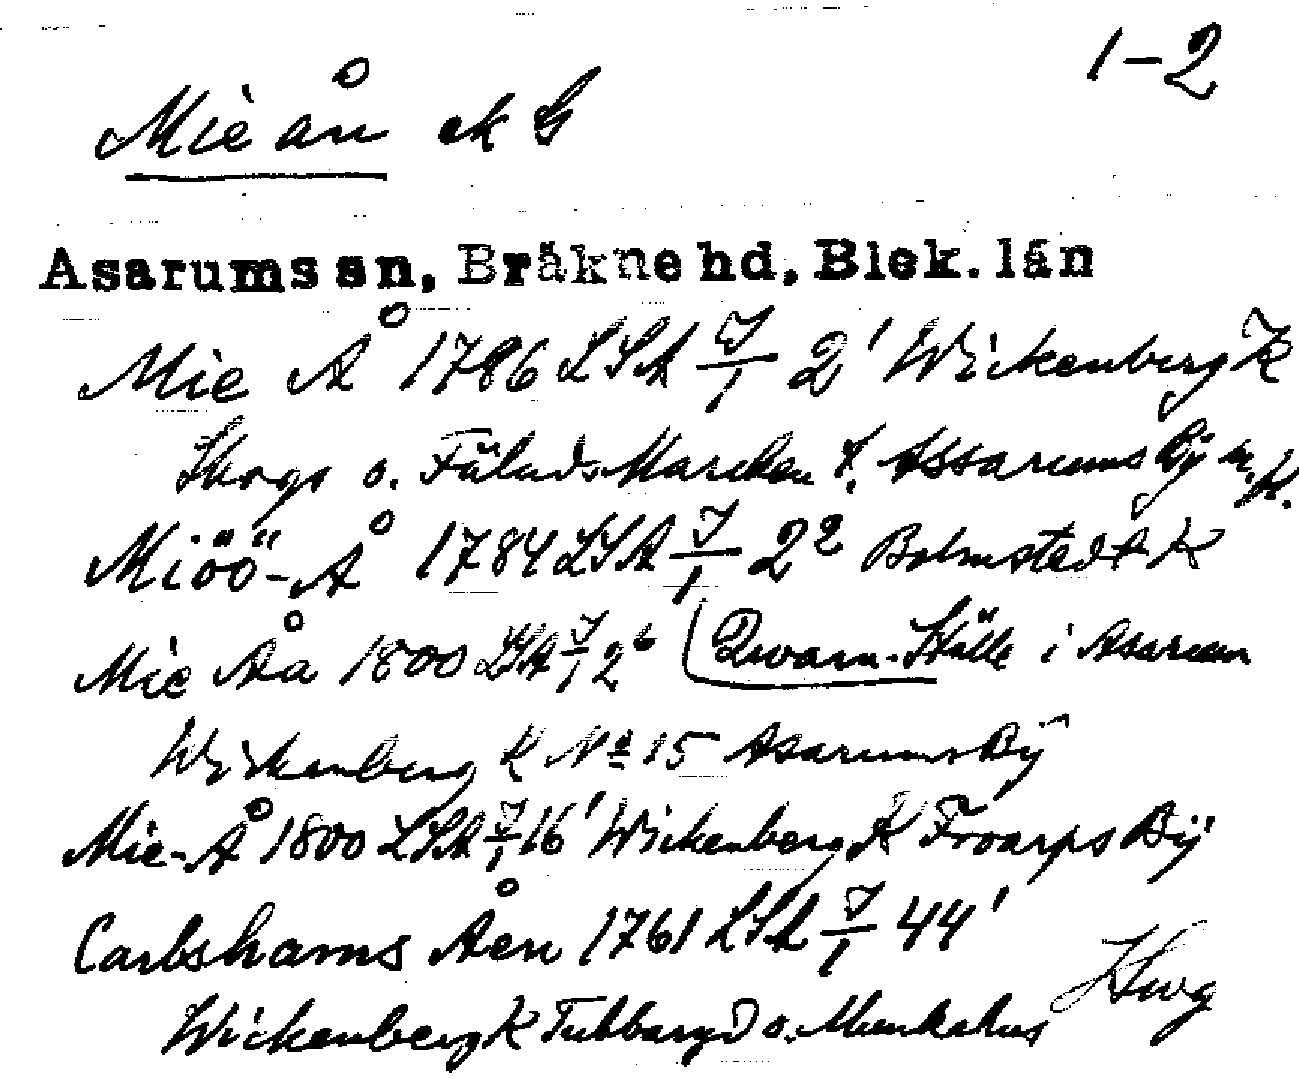 1-2
Mieån ek G
Asarums sn, Bräkne hd, Blek. län
Mie Å 1786 LSA J/1 2¹ Wickenberg K
Skogs o. Fälads Marcken t. Assarums By m. K.
Miöö-Å 1784 LSA J/1 2² Bolmstedt K
Mie Åa 1800 LSA J/1 2⁶ Qvarn-Ställe i Asarum
Wickenberg K Nº 15 Asarums Bÿ
Mie-Å 1800 LSA J/1 16¹ Wickenberg K Froarps Bÿ
Carlshams Åen 1761 LSA J/1 44¹
Wickenberg K Tubbaryd o. Munkahus